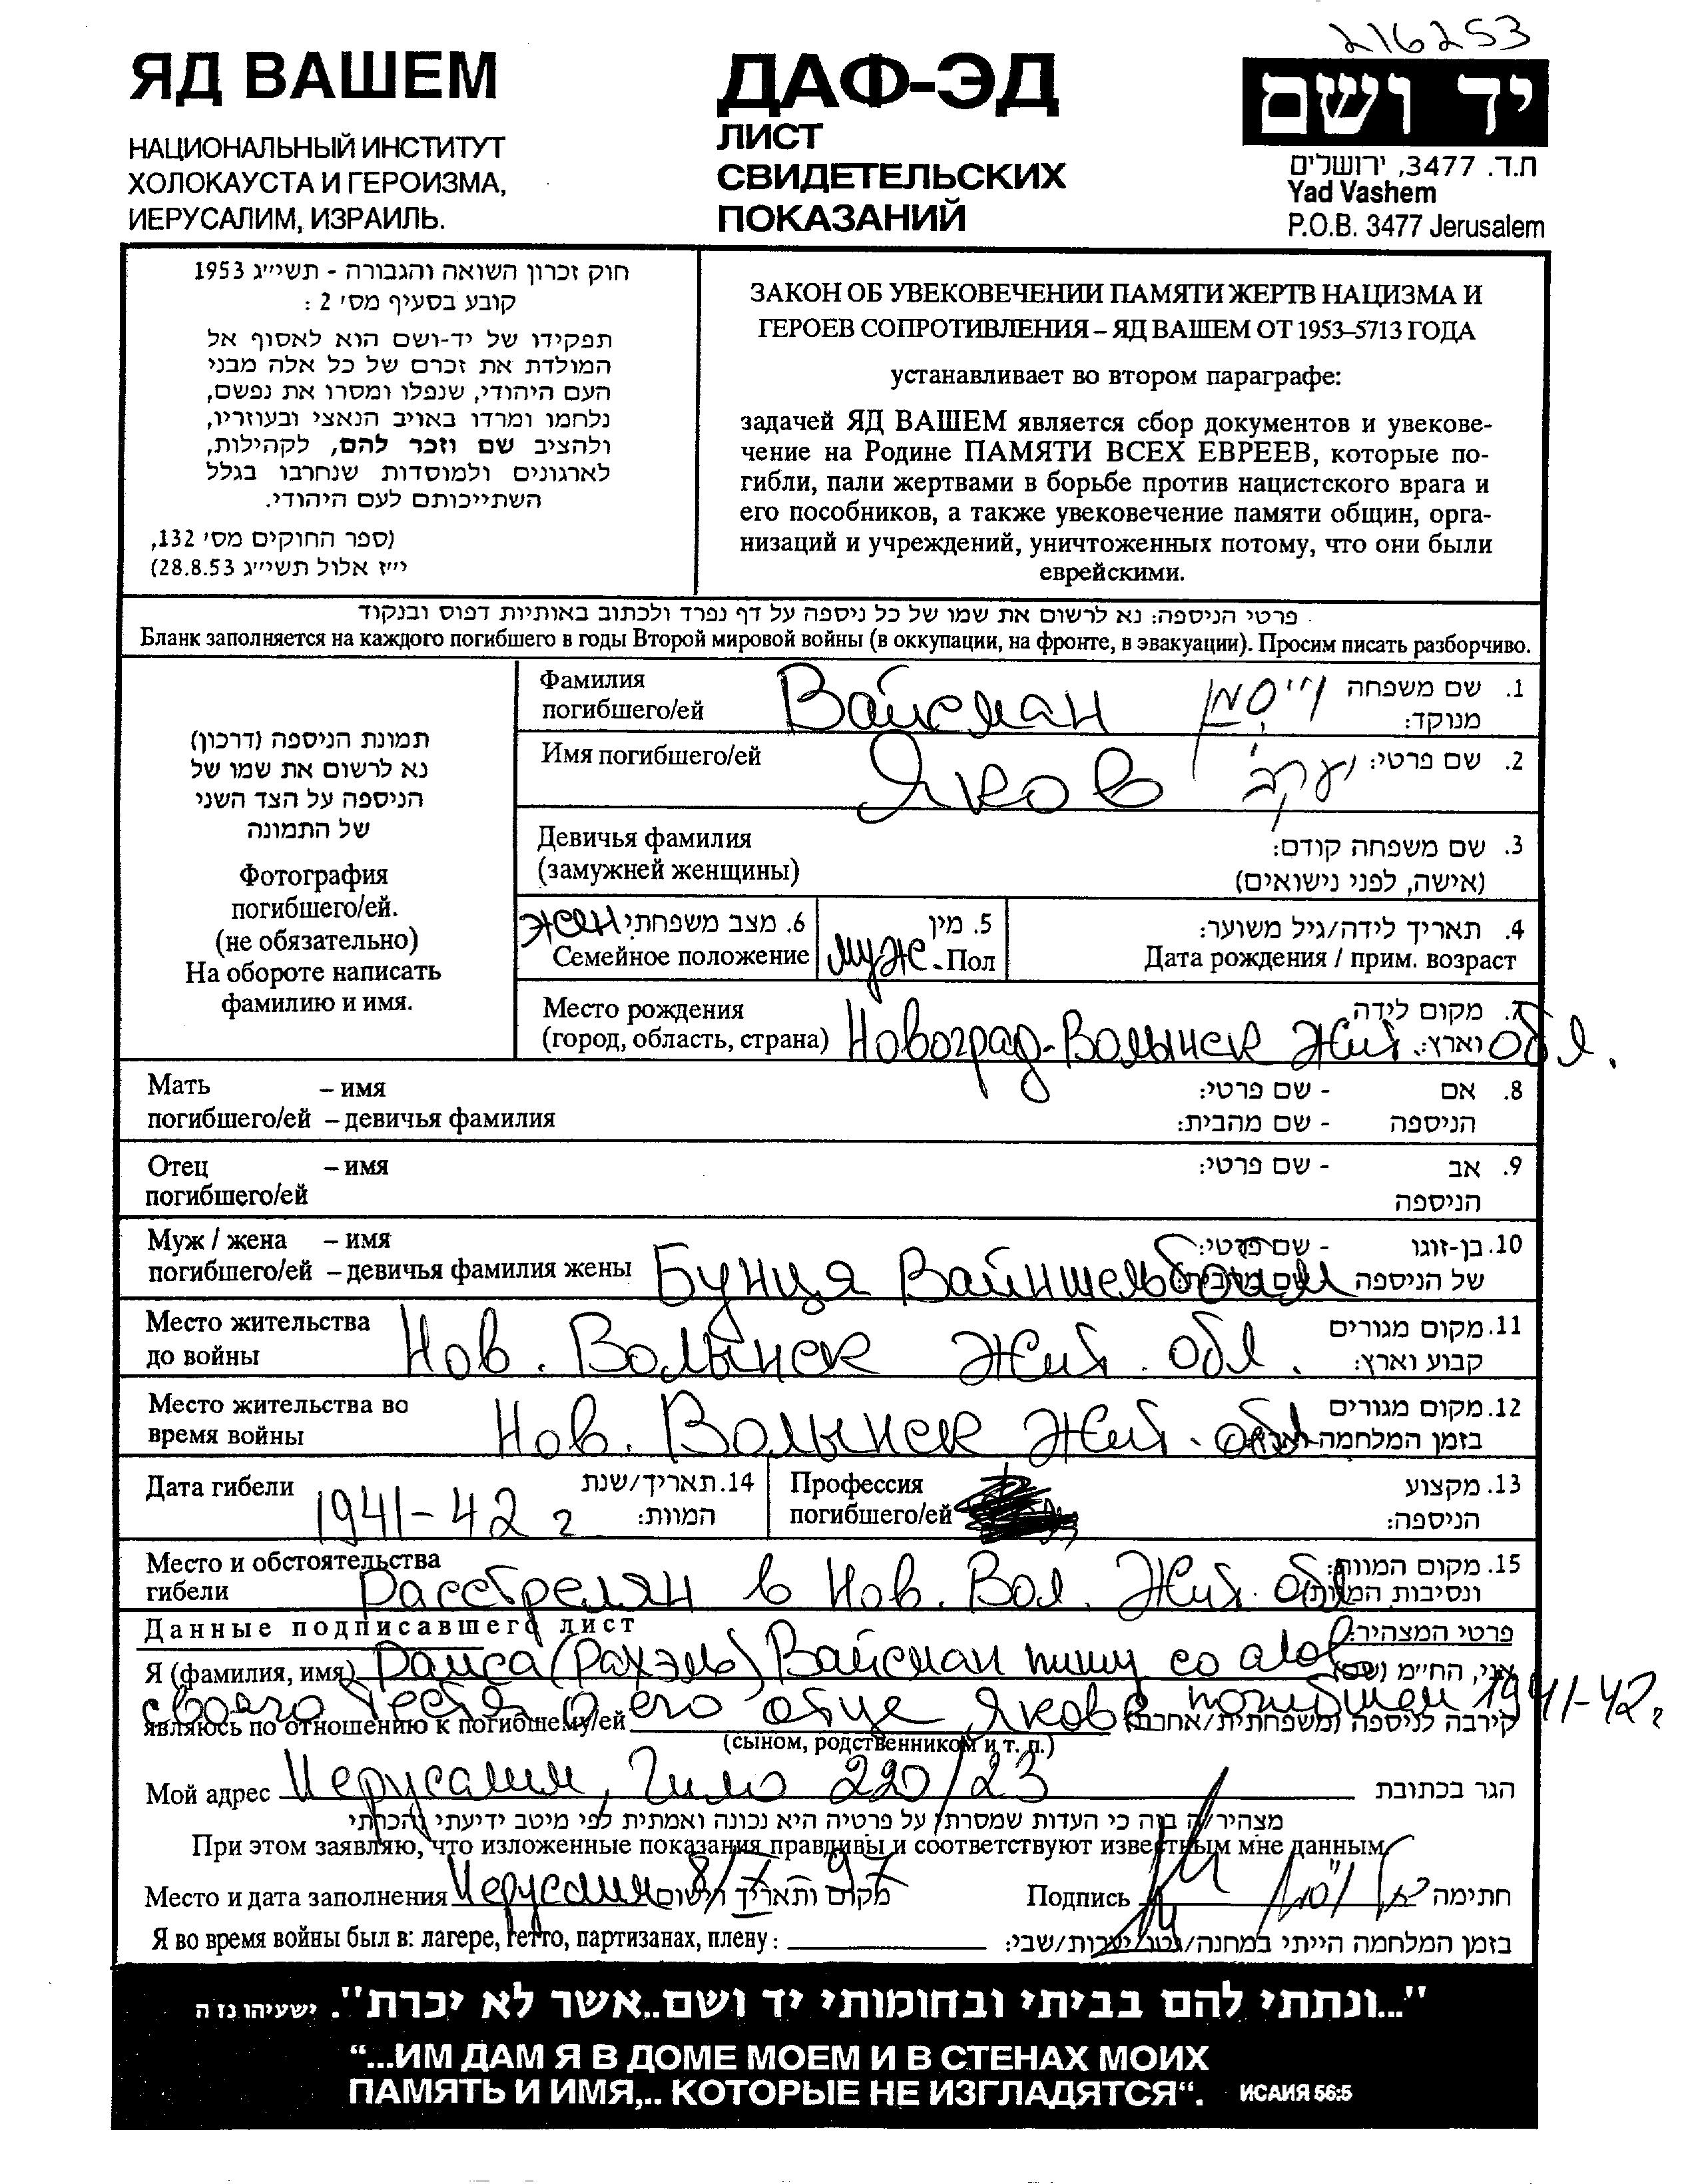 216253
ЯД ВАШЕМ
НАЦИОНАЛЬНЫЙ ИНСТИТУТ
ХОЛОКАУСТА И ГЕРОИЗМА,
ИЕРУСАЛИМ, ИЗРАИЛЬ.
ДАФ-ЭД
ЛИСТ
СВИДЕТЕЛЬСКИХ
ПОКАЗАНИЙ
יד ושם
ת.ד. 3477, ירושלים
Yad Vashem
P.O.B. 3477 Jerusalem
חוק זכרון השואה והגבורה - תשי״ג 1953
קובע בסעיף מס׳ 2 :
תפקידו של יד-ושם הוא לאסוף אל
המולדת את זכרם של כל אלה מבני
העם היהודי, שנפלו ומסרו את נפשם,
נלחמו ומרדו באויב הנאצי ובעוזריו,
ולהציב שם וזכר להם, לקהילות,
לארגונים ולמוסדות שנחרבו בגלל
השתייכותם לעם היהודי.
(ספר החוקים מס׳ 132,
י״ז אלול תשי״ג 28.8.53)
ЗАКОН ОБ УВЕКОВЕЧЕНИИ ПАМЯТИ ЖЕРТВ НАЦИЗМА И
ГЕРОЕВ СОПРОТИВЛЕНИЯ – ЯД ВАШЕМ ОТ 1953–5713 ГОДА
устанавливает во втором параграфе:
задачей ЯД ВАШЕМ является сбор документов и увекове-
чение на Родине ПАМЯТИ ВСЕХ ЕВРЕЕВ, которые по-
гибли, пали жертвами в борьбе против нацистского врага и
его пособников, а также увековечение памяти общин, орга-
низаций и учреждений, уничтоженных потому, что они были
еврейскими.
פרטי הניספה: נא לרשום את שמו של כל ניספה על דף נפרד ולכתוב באותיות דפוס ובנקוד
Бланк заполняется на каждого погибшего в годы Второй мировой войны (в оккупации, на фронте, в эвакуации). Просим писать разборчиво.
תמונת הניספה (דרכון)
נא לרשום את שמו של
הניספה על הצד השני
של התמונה
Фотография
погибшего/ей.
(не обязательно)
На обороте написать
фамилию и имя.
Фамилия
погибшего/ей Вайсман וייסמן 1. שם משפחה
מנוקד:
Имя погибшего/ей Яков יעקב 2. שם פרטי:
Девичья фамилия 3. שם משפחה קודם:
(замужней женщины) (אישה, לפני נישואים)
жен 6. מצב משפחתי 5. מין 4. תאריך לידה/גיל משוער:
Семейное положение муж. Пол Дата рождения / прим. возраст
Место рождения 7. מקום לידה
(город, область, страна) Новоград-Волынск Жит. обл. וארץ:
Мать – имя - שם פרטי: 8. אם
погибшего/ей – девичья фамилия - שם מהבית: הניספה
Отец – имя - שם פרטי: 9. אב
погибшего/ей הניספה
Муж / жена – имя - שם פרטי: 10. בן-זוגו
погибшего/ей – девичья фамилия жены Бунця Вайншельбойм של הניספה
Место жительства 11. מקום מגורים
до войны Нов. Волынск Жит. обл. קבוע וארץ:
Место жительства во 12. מקום מגורים
время войны Нов. Волынск Жит. обл. בזמן המלחמה
Дата гибели 1941-42 г. 14. תאריך/שנת
המוות:
Профессия 13. מקצוע
погибшего/ей הניספה:
Место и обстоятельства 15. מקום המוות
гибели Расстрелян в Нов. Вол. Жит. обл. ונסיבות המוות
Данные подписавшего лист פרטי המצהיר:
Я (фамилия, имя) Раиса (Рахэль) Вайсман пишу со слов אני, הח״מ (שם)
своего тестя о его отце Якове погибшем 1941-42 г
являюсь по отношению к погибшему/ей קירבה לניספה (משפחתית/אחרת)
(сыном, родственником и т. п.)
Мой адрес Иерусалим, Гило 220/23 הגר בכתובת
מצהיר/ה בזה כי העדות שמסרתי על פרטיה היא נכונה ואמתית לפי מיטב ידיעתי והכרתי
При этом заявляю, что изложенные показания правдивы и соответствуют известным мне данным
Место и дата заполнения Иерусалим 8/V-97 מקום ותאריך רישום Подпись חתימה
Я во время войны был в: лагере, гетто, партизанах, плену: בזמן המלחמה הייתי במחנה/גטו/יערות/שבי:
"...ונתתי להם בביתי ובחומותי יד ושם..אשר לא יכרת". ישעיהו נז ה
“...ИМ ДАМ Я В ДОМЕ МОЕМ И В СТЕНАХ МОИХ
ПАМЯТЬ И ИМЯ,.. КОТОРЫЕ НЕ ИЗГЛАДЯТСЯ“. ИСАИЯ 56:5